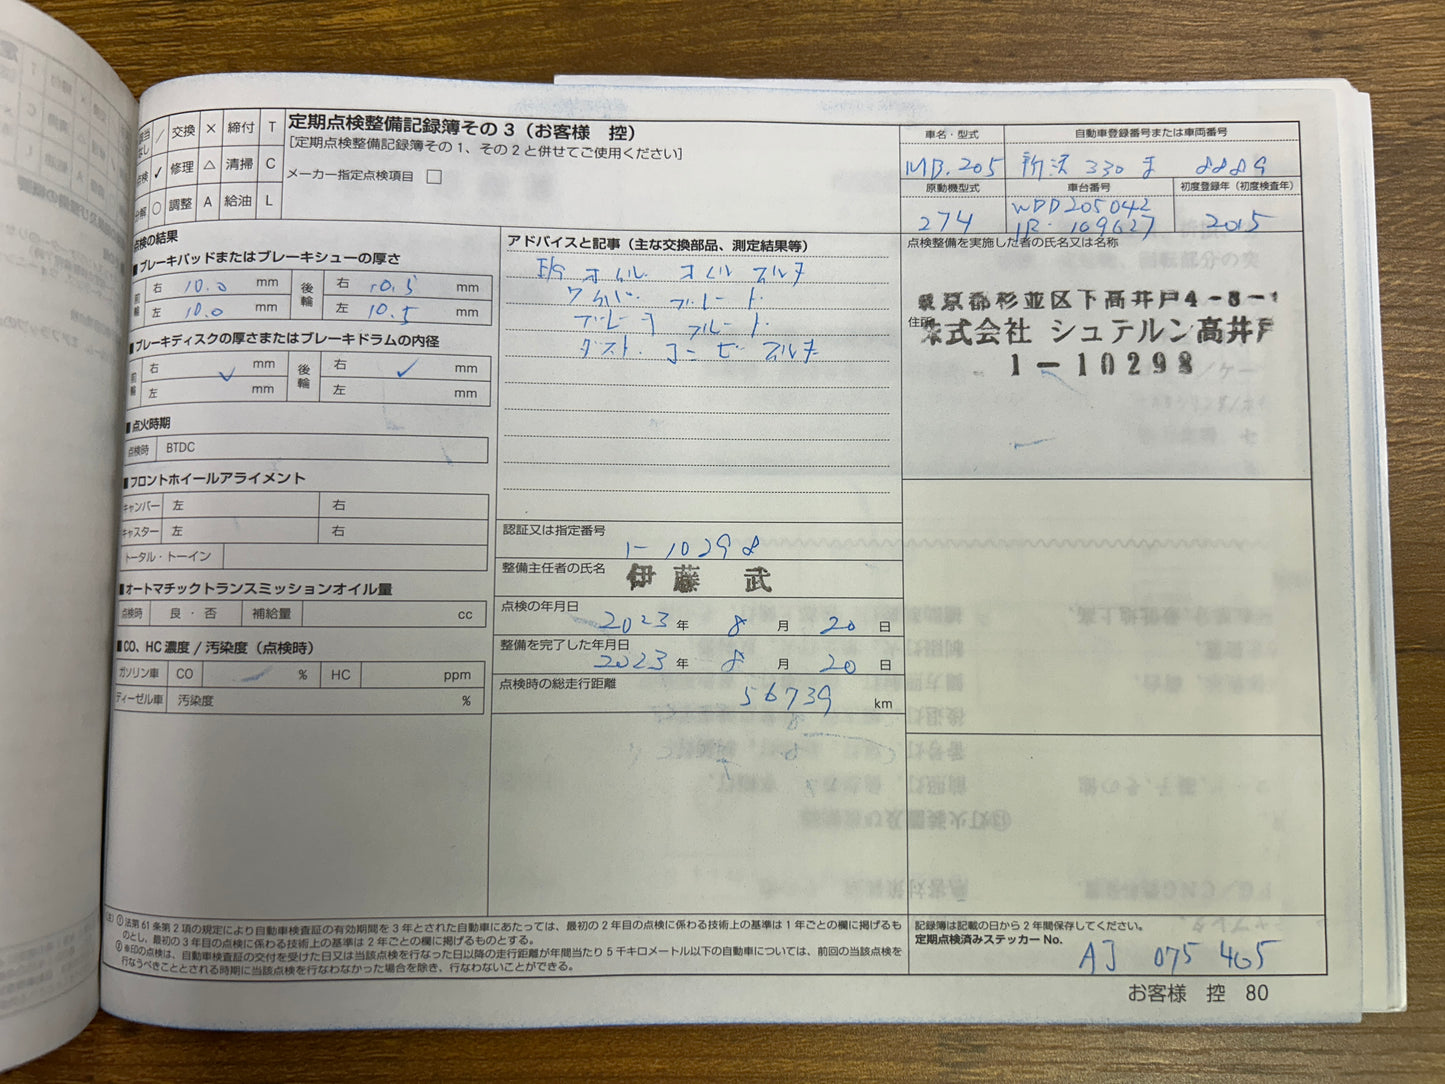 交換 × 締付 T
点検 ✓ 修理 △ 清掃 C
分解 ○ 調整 A 給油 L
定期点検整備記録簿その3（お客様 控）
[定期点検整備記録簿その1、その2と併せてご使用ください]
メーカー指定点検項目 □
車名・型式
MB.205
自動車登録番号または車両番号
330 8889
原動機型式
274
車台番号
WDD205042
初度登録年（初度検査年）
2015
点検の結果
■ブレーキパッドまたはブレーキシューの厚さ
前輪 右 10.0 mm 後輪 右 10.5 mm
左 10.0 mm 左 10.5 mm
■ブレーキディスクの厚さまたはブレーキドラムの内径
前輪 右 mm 後輪 右 mm
左 ✓ mm 左 ✓ mm
■点火時期
点検時 BTDC
■フロントホイールアライメント
キャンバー 左 右
キャスター 左 右
トータル・トーイン
■オートマチックトランスミッションオイル量
点検時 良・否 補給量 cc
■CO、HC濃度/汚染度（点検時）
ガソリン車 CO % HC ppm
ディーゼル車 汚染度 %
アドバイスと記事（主な交換部品、測定結果等）
E/G オイル オイル フィルタ
ワイパー ブレード
ブレーキ フルード
ダスト
認証又は指定番号
1-10298
整備主任者の氏名 伊藤 武
点検の年月日
2023 年 8 月 20 日
整備を完了した年月日
2023 年 8 月 20 日
点検時の総走行距離
56739 km
点検整備を実施した者の氏名又は名称
東京都杉並区下高井戸4-8-1
住所
株式会社 シュテルン高井戸
1-10298
(注) ① 法第61条第2項の規定により自動車検査証の有効期間を3年とされた自動車にあたっては、最初の2年目の点検に係わる技術上の基準は1年ごとの欄に掲げるも
のとし、最初の3年目の点検に係わる技術上の基準は2年ごとの欄に掲げるものとする。
② ※印の点検は、自動車検査証の交付を受けた日又は当該点検を行なった日以降の走行距離が年間当たり5千キロメートル以下の自動車については、前回の当該点検を
行なうべきこととされる時期に当該点検を行なわなかった場合を除き、行なわないことができる。
記録簿は記載の日から2年間保存してください。
定期点検済みステッカーNo.
AJ 075 405
お客様 控 80